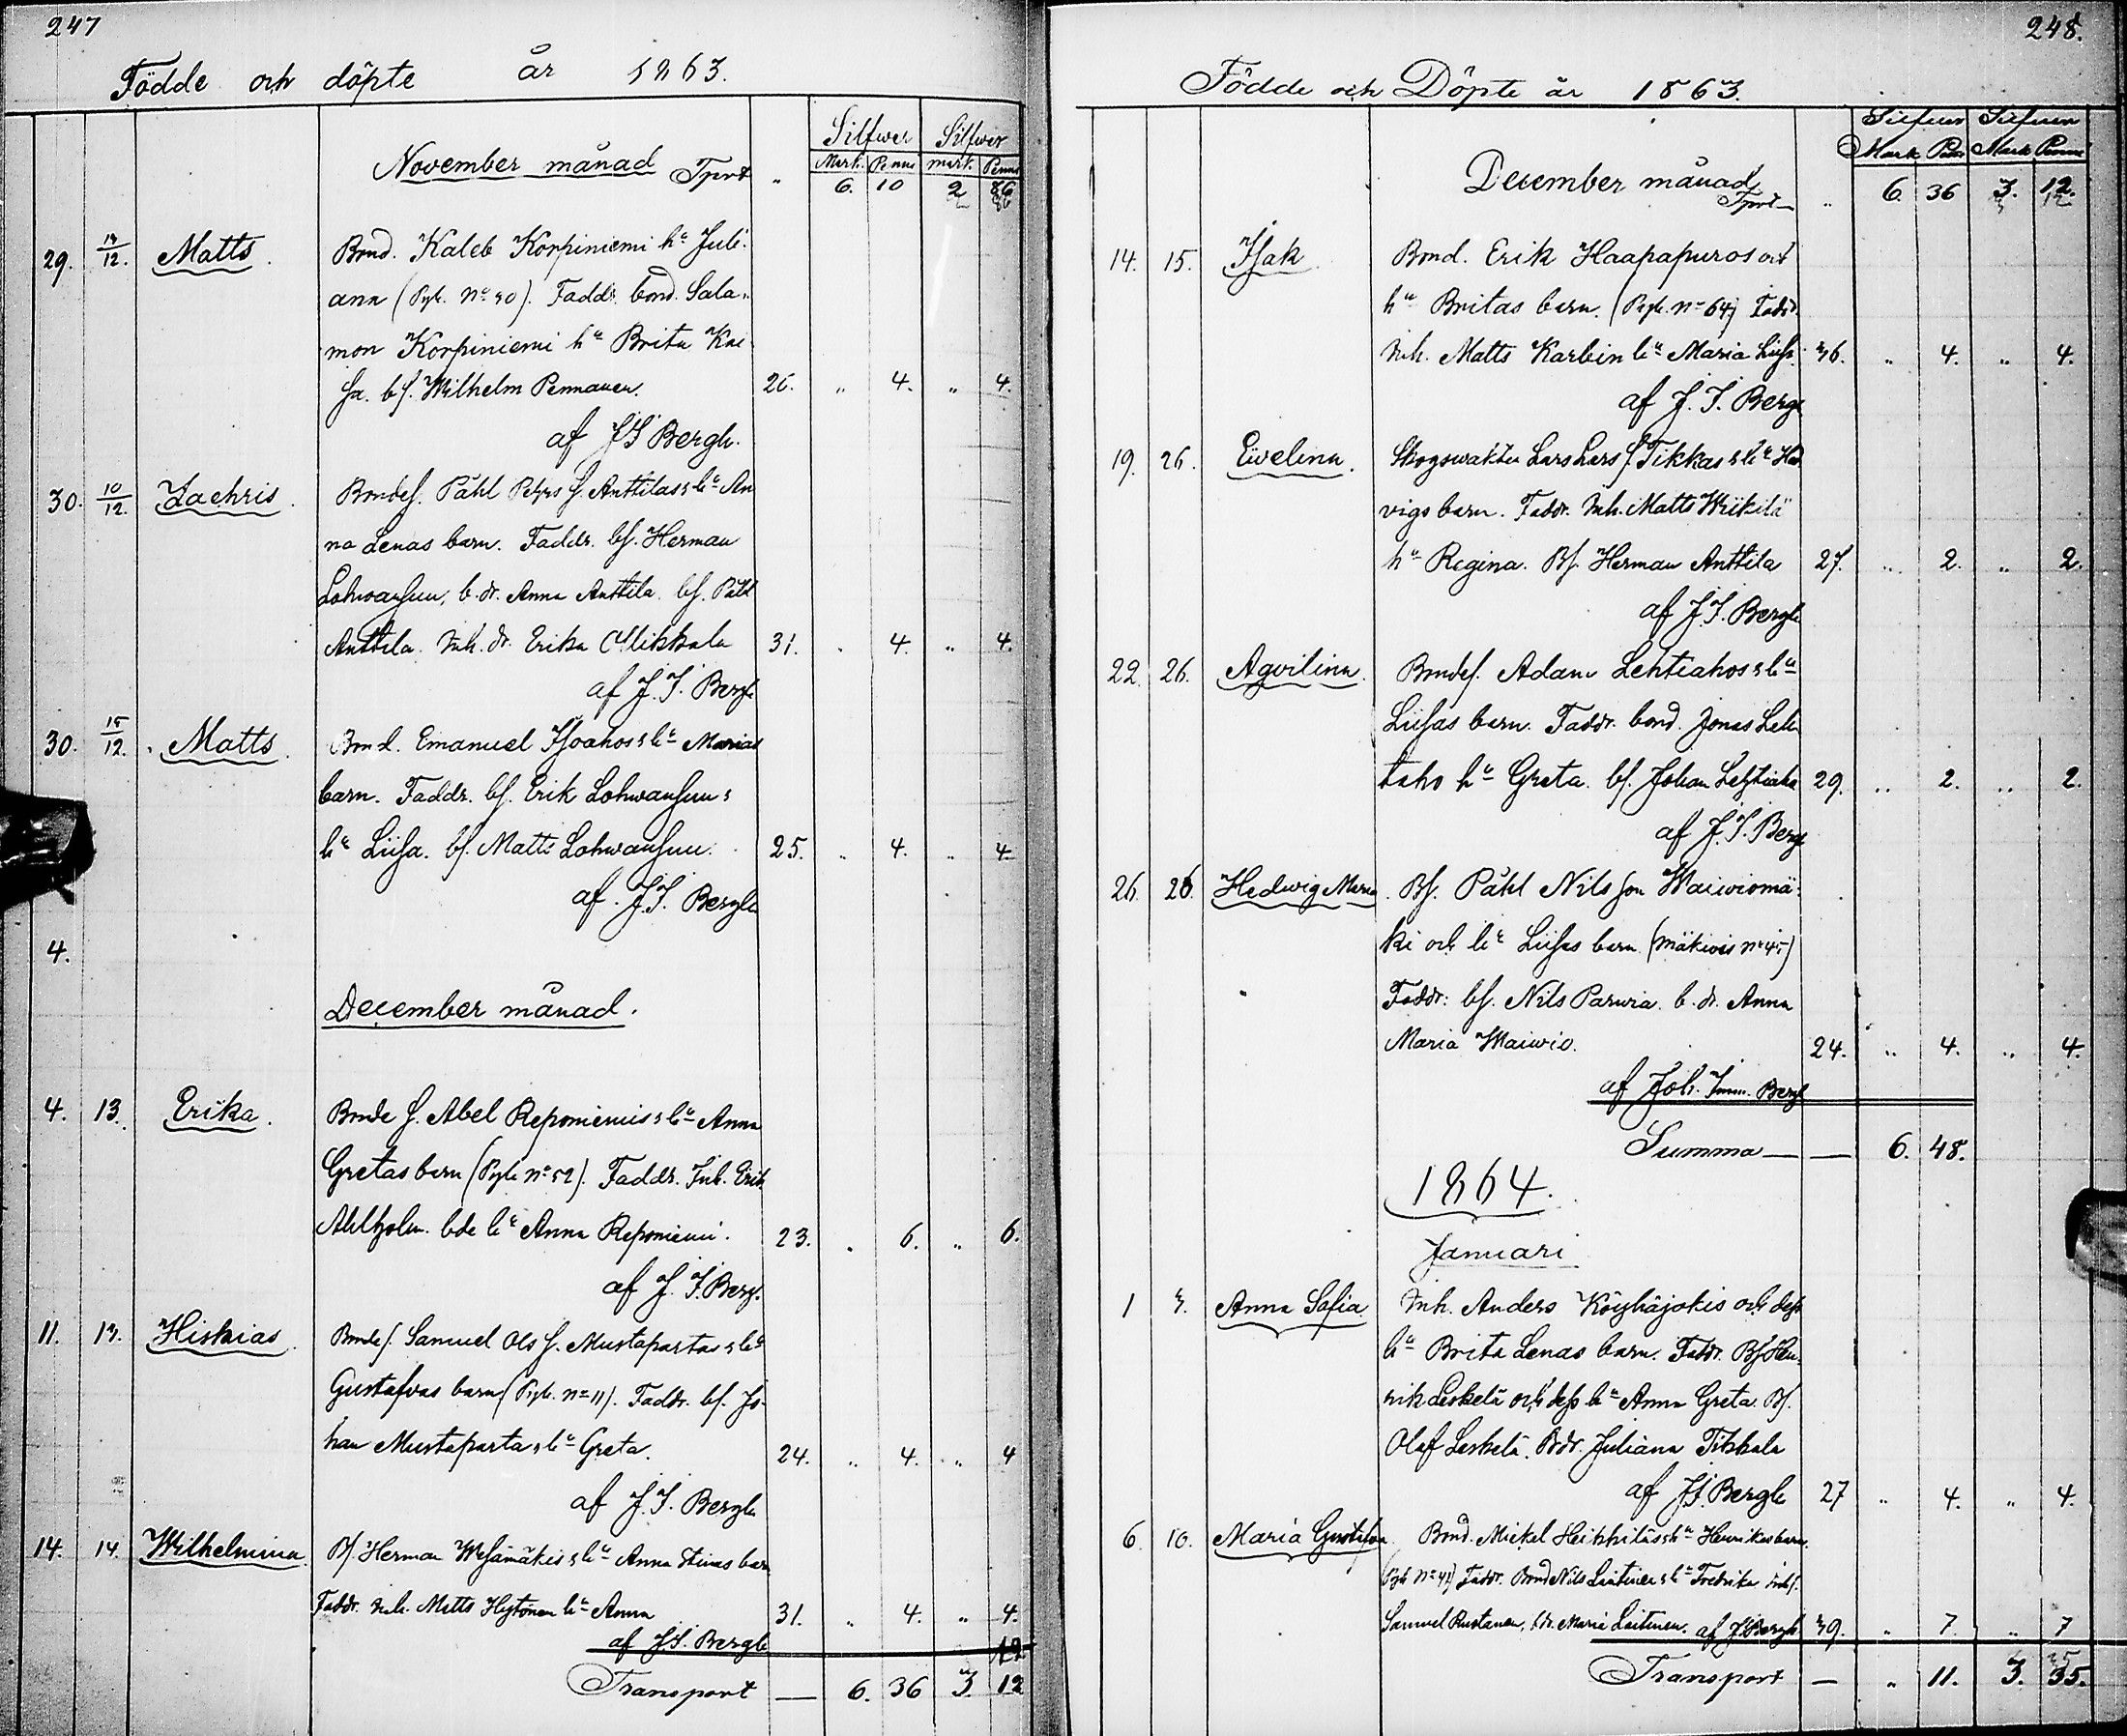 247
Födde och döpte år 1863.
Silfwer Silfwer
Mark. Penni mark. Penni
November månad Tprt „ 6. 10 2 86
29. 14/12. Matts. Bond. Kaleb Korpiniemi hu Juli-
ana (Pgk. No 40). Faddr. bond. Sala-
mon Korpiniemi hu Brita Kai
sa. bs. Wilhelm Pennanen. 26. „ 4. „ 4.
af J I Bergh.
30. 10/12. Zachris. Bondes. Påhl Pehrs s. Anttilas & hu An
na Lenas barn. Faddr. bs. Herman
Lohwansuu, b. dr. Anna Anttila. bs. Påhl
Anttila. Inh. dr. Erika Mikkala 31. „ 4. „ 4.
af J. I. Bergh
30. 15/12. Matts. Bond. Emanuel Isoahos & hu Marias
barn. Faddr. bs. Erik Lohwansuu &
hu Liisa. bs. Matts Lohwansuu. 25. „ 4. „ 4
af. J. I. Bergh
4.
December månad.
4. 13. Erika. Bonde s. Abel Reponiemis & hu Anna
Gretas barn (Pgk No 52). Faddr. Inh. Erik
Ahlholm. bde hu Anna Reponiemi. 23. „ 6. „ 6.
af J. I. Bergh.
11. 13. Hiskias. Bondes. Samuel Ols s. Mustapartas & hu
Gustafvas barn (Pgk. No 11). Faddr. bs. Jo-
han Mustaparta & hu Greta. 24. „ 4. „ 4
af J. I. Bergh
14. 14. Wilhelmina. Bs. Herman Wesämäkis & hu Anna Stinas barn
Faddr. Inh. Matts Hytönen hu Anna 31. „ 4. „ 4.
af J. I. Bergh 12
Transport — 6. 36 3 12
248.
Födde och Döpte år 1863.
Silfwer Silfwer
Mark Penni Mark Penni
December månad
Tprt „ 6. 36 3. 12.
14. 15. Isak. Bond. Erik Haapapuros och
hu Britas barn. (Pgk. No 64) Faddr.
Inh. Matts Karbin hu Maria Liisa. 36. „ 4. „ 4.
af J. I. Bergh
19. 26. Ewelina. Skogswaktar Lars Lars s. Tikkas & hu Hed
vigs barn. Faddr. Inh. Matts Wiikilä
hu Regina. Bs. Herman Anttila 27. „ 2. „ 2.
af J. I. Bergh
22. 26. Aqvilina. Bondes. Adam Lehtiahos & hu
Liisas barn. Faddr. bond. Jonas Leh
tiaho hu Greta. bs. Johan Lehtiaho 29. „ 2. „ 2.
af J. I. Bergh
26. 26. Hedwig Maria. Bs. Påhl Nilsson Waiwiomä-
ki och hu Liisas barn (No 45)
Faddr: bs. Nils Parwia. b. dr. Anna
Maria Waiwio. 24. „ 4. „ 4.
af Joh. Imm. Bergh
Summa — — 6. 48.
1864.
Januari
1 3. Anna Sofia Inh. Anders Köyhäjokis och dess
hu Brita Lenas barn. Faddr. Bs Hen-
rik Leskelä och dess hu Anna Greta. Bs.
Olaf Leskelä. Bdr. Juliana Tikkala
af J. I. Bergh 27 „ 4. „ 4.
6. 10. Maria Gustafva. Bond. Mickel Heikkiläs & hu Henrikas barn.
(Pgk No 41) Faddr. Bond Nils Laitinen & hu Fredrika inhs.
Samuel Rustanen, bdr. Maria Laitinen. af J. I. Bergh 39. „ 7. „ 7
Transport — „ 11. 3. 35.